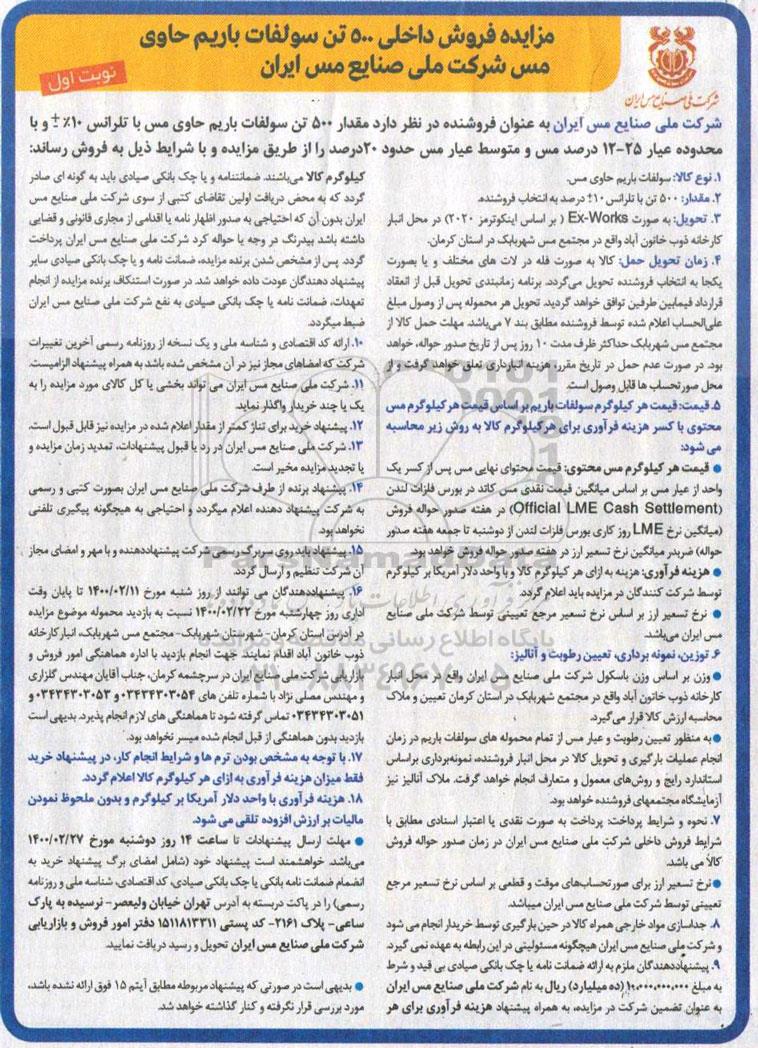 مزایده فروش داخلی ۵۰۰ تن سولفات باریم حاوی
مس شرکت ملی صنایع مس ایران
نوبت اول
شرکت ملی صنایع مس ایران
شرکت ملی صنایع مس ایران به عنوان فروشنده در نظر دارد مقدار ۵۰۰ تن سولفات باریم حاوی مس با تلرانس ۱۰٪ ± و با
محدوده عیار ۲۵-۱۲ درصد مس و متوسط عیار مس حدود ۲۰درصد را از طریق مزایده و با شرایط ذیل به فروش رساند:
۱. نوع کالا: سولفات باریم حاوی مس.
۲. مقدار: ۵۰۰ تن با تلرانس ۱۰± درصد به انتخاب فروشنده.
۳. تحویل: به صورت Ex-Works ( بر اساس اینکوترمز ۲۰۲۰) در محل انبار
کارخانه ذوب خاتون آباد واقع در مجتمع مس شهربابک در استان کرمان.
۴. زمان تحویل حمل: کالا به صورت فله در لات های مختلف و یا بصورت
یکجا به انتخاب فروشنده تحویل می‌گردد. برنامه زمانبندی تحویل قبل از انعقاد
قرارداد فیمابین طرفین توافق خواهد گردید. تحویل هر محموله پس از وصول مبلغ
علی‌الحساب اعلام شده توسط فروشنده مطابق بند ۷ می‌باشد. مهلت حمل کالا از
مجتمع مس شهربابک حداکثر ظرف مدت ۱۰ روز پس از تاریخ صدور حواله، خواهد
بود. در صورت عدم حمل در تاریخ مقرر، هزینه انبارداری تعلق خواهد گرفت و از
محل صورتحساب ها قابل وصول است.
۵. قیمت: قیمت هر کیلوگرم سولفات باریم بر اساس قیمت هر کیلوگرم مس
محتوی با کسر هزینه فرآوری برای هر کیلوگرم کالا به روش زیر محاسبه
می شود:
● قیمت هر کیلوگرم مس محتوی: قیمت محتوای نهایی مس پس از کسر یک
واحد از عیار مس بر اساس میانگین قیمت نقدی مس کاتد در بورس فلزات لندن
(Official LME Cash Settlement) در هفته صدور حواله فروش
(میانگین نرخ LME روز کاری بورس فلزات لندن از دوشنبه تا جمعه هفته صدور
حواله) ضربدر میانگین نرخ تسعیر ارز در هفته صدور حواله فروش خواهد بود.
● هزینه فرآوری: هزینه به ازای هر کیلوگرم کالا و با واحد دلار آمریکا بر کیلوگرم
توسط شرکت کنندگان در مزایده باید اعلام گردد.
● نرخ تسعیر ارز بر اساس نرخ تسعیر مرجع تعیینی توسط شرکت ملی صنایع
مس ایران می‌باشد.
۶. توزین، نمونه برداری، تعیین رطوبت و آنالیز:
● وزن بر اساس وزن باسکول شرکت ملی صنایع مس ایران واقع در محل انبار
کارخانه ذوب خاتون آباد واقع در مجتمع شهربابک در استان کرمان تعیین و ملاک
محاسبه ارزش کالا قرار می‌گیرد.
● به منظور تعیین رطوبت و عیار مس از تمام محموله های سولفات باریم در زمان
انجام عملیات بارگیری و تحویل کالا در محل انبار فروشنده، نمونه‌برداری براساس
استاندارد رایج و روش‌های معمول و متعارف انجام خواهد گرفت. ملاک آنالیز نیز
آزمایشگاه مجتمعهای فروشنده خواهد بود.
۷. نحوه و شرایط پرداخت: پرداخت به صورت نقدی یا اعتبار اسنادی مطابق با
شرایط فروش داخلی شرکت ملی صنایع مس ایران در زمان صدور حواله فروش
کالا می باشد.
● نرخ تسعیر ارز برای صورتحساب‌های موقت و قطعی بر اساس نرخ تسعیر مرجع
تعیینی توسط شرکت ملی صنایع مس ایران میباشد.
۸. جداسازی مواد خارجی همراه کالا در حین بارگیری توسط خریدار انجام می شود
و شرکت ملی صنایع مس ایران هیچگونه مسئولیتی در این رابطه به عهده نمی گیرد.
۹. پیشنهاددهندگان ملزم به ارائه ضمانت نامه یا چک بانکی صیادی بی قید و شرط
به مبلغ ۱۰,۰۰۰,۰۰۰,۰۰۰ (ده میلیارد) ریال به نام شرکت ملی صنایع مس ایران
به عنوان تضمین شرکت در مزایده، به همراه پیشنهاد هزینه فرآوری برای هر
کیلوگرم کالا می‌باشند. ضمانتنامه و یا چک بانکی صیادی باید به گونه ای صادر
گردد که به محض دریافت اولین تقاضای کتبی از سوی شرکت ملی صنایع مس
ایران بدون آن که احتیاجی به صدور اظهار نامه یا اقدامی از مجاری قانونی و قضایی
داشته باشد بیدرنگ در وجه یا حواله کرد شرکت ملی صنایع مس ایران پرداخت
گردد. پس از مشخص شدن برنده مزایده، ضمانت نامه و یا چک بانکی صیادی سایر
پیشنهاد دهندگان عودت داده خواهد شد. در صورت استنکاف برنده مزایده از انجام
تعهدات، ضمانت نامه یا چک بانکی صیادی به نفع شرکت ملی صنایع مس ایران
ضبط میگردد.
۱۰. ارائه کد اقتصادی و شناسه ملی و یک نسخه از روزنامه رسمی آخرین تغییرات
شرکت که امضاهای مجاز نیز در آن مشخص شده باشد به همراه پیشنهاد الزامیست.
۱۱. شرکت ملی صنایع مس ایران می تواند بخشی یا کل کالای مورد مزایده را به
یک یا چند خریدار واگذار نماید.
۱۲. پیشنهاد خرید برای تناژ کمتر از مقدار اعلام شده در مزایده نیز قابل قبول است.
۱۳. شرکت ملی صنایع مس ایران در رد یا قبول پیشنهادات، تمدید زمان مزایده و
یا تجدید مزایده مخیر است.
۱۴. پیشنهاد برنده از طرف شرکت ملی صنایع مس ایران بصورت کتبی و رسمی
به شرکت پیشنهاد دهنده اعلام میگردد و احتیاجی به هیچگونه پیگیری تلفنی
نخواهد بود.
۱۵. پیشنهاد باید روی سربرگ رسمی شرکت پیشنهاددهنده و با مهر و امضای مجاز
آن شرکت تنظیم و ارسال گردد.
۱۶. پیشنهاددهندگان می توانند از روز شنبه مورخ ۱۴۰۰/۰۲/۱۱ تا پایان وقت
اداری روز چهارشنبه مورخ ۱۴۰۰/۰۲/۲۲ نسبت به بازدید محموله موضوع مزایده
در آدرس استان کرمان- شهرستان شهربابک- مجتمع مس شهربابک، انبار کارخانه
ذوب خاتون آباد اقدام نمایند. جهت انجام بازدید با اداره هماهنگی امور فروش و
بازاریابی شرکت ملی صنایع مس ایران در سرچشمه کرمان، جناب آقایان مهندس گلزاری
و مهندس مصلی نژاد با شماره تلفن های ۰۳۴۳۴۳۰۳۰۵۴ و ۰۳۴۳۴۳۰۳۰۵۳ و
۰۳۴۳۴۳۰۳۰۵۱ تماس گرفته شود تا هماهنگی های لازم انجام پذیرد. بدیهی است
بازدید بدون هماهنگی از قبل انجام شده میسر نخواهد بود.
۱۷. با توجه به مشخص بودن ترم ها و شرایط انجام کار، در پیشنهاد خرید
فقط میزان هزینه فرآوری به ازای هر کیلوگرم کالا اعلام گردد.
۱۸. هزینه فرآوری با واحد دلار آمریکا بر کیلوگرم و بدون ملحوظ نمودن
مالیات بر ارزش افزوده تلقی می شود.
● مهلت ارسال پیشنهادات تا ساعت ۱۴ روز دوشنبه مورخ ۱۴۰۰/۰۲/۲۷
می‌باشد. خواهشمند است پیشنهاد خود (شامل امضای برگ پیشنهاد خرید به
انضمام ضمانت نامه بانکی یا چک بانکی صیادی، کد اقتصادی، شناسه ملی و روزنامه
رسمی) را در پاکت دربسته به آدرس تهران خیابان ولیعصر- نرسیده به پارک
ساعی- پلاک ۲۱۶۱- کد پستی ۱۵۱۱۸۱۳۳۱۱ دفتر امور فروش و بازاریابی
شرکت ملی صنایع مس ایران تحویل و رسید دریافت نمایید.
● بدیهی است در صورتی که پیشنهاد مربوطه مطابق آیتم ۱۵ فوق ارائه نشده باشد،
مورد بررسی قرار نگرفته و کنار گذاشته خواهد شد.